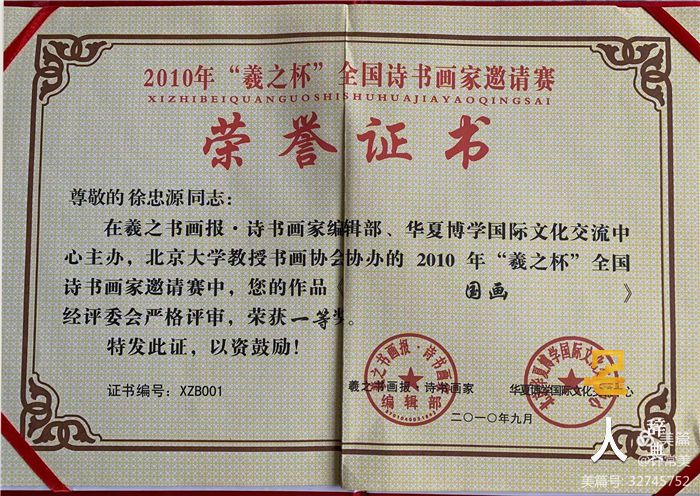 2010年“羲之杯”全国诗书画家邀请赛
XIZHIBEIQUANGUOSHISHUHUAJIAYAOQINGSAI
荣誉证书
尊敬的徐忠源同志：
在羲之书画报·诗书画家编辑部、华夏博学国际文化交流中
心主办，北京大学教授书画协会协办的 2010 年“羲之杯”全国
诗书画家邀请赛中，您的作品《 国画 》
经评委会严格评审，荣获一等奖。
特发此证，以资鼓励！
证书编号：XZB001
羲之书画报·诗书画家
编辑部
华夏博学国际文化交流中心
二〇一〇年九月
名人辞典
美篇
美篇号: 32745752